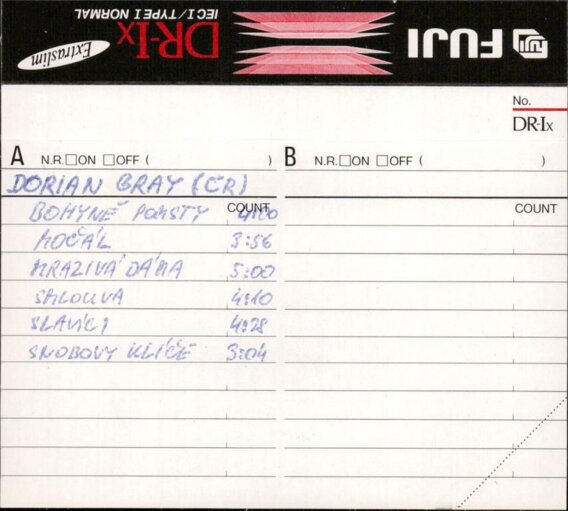 FUJI
DR-Ix
IEC I/TYPE I NORMAL
Extraslim
No.
DR-Ix
A N.R. □ON □OFF ( )
DORIAN GRAY (ČR)
COUNT
BOHYNĚ POMSTY 4:00
MOČÁL 3:56
MRAZIVÁ DÁMA 5:00
SMLOUVA 4:10
SLAVÍCI 4:28
SNOBOVY KLÍČE 3:04
B N.R. □ON □OFF ( )
COUNT